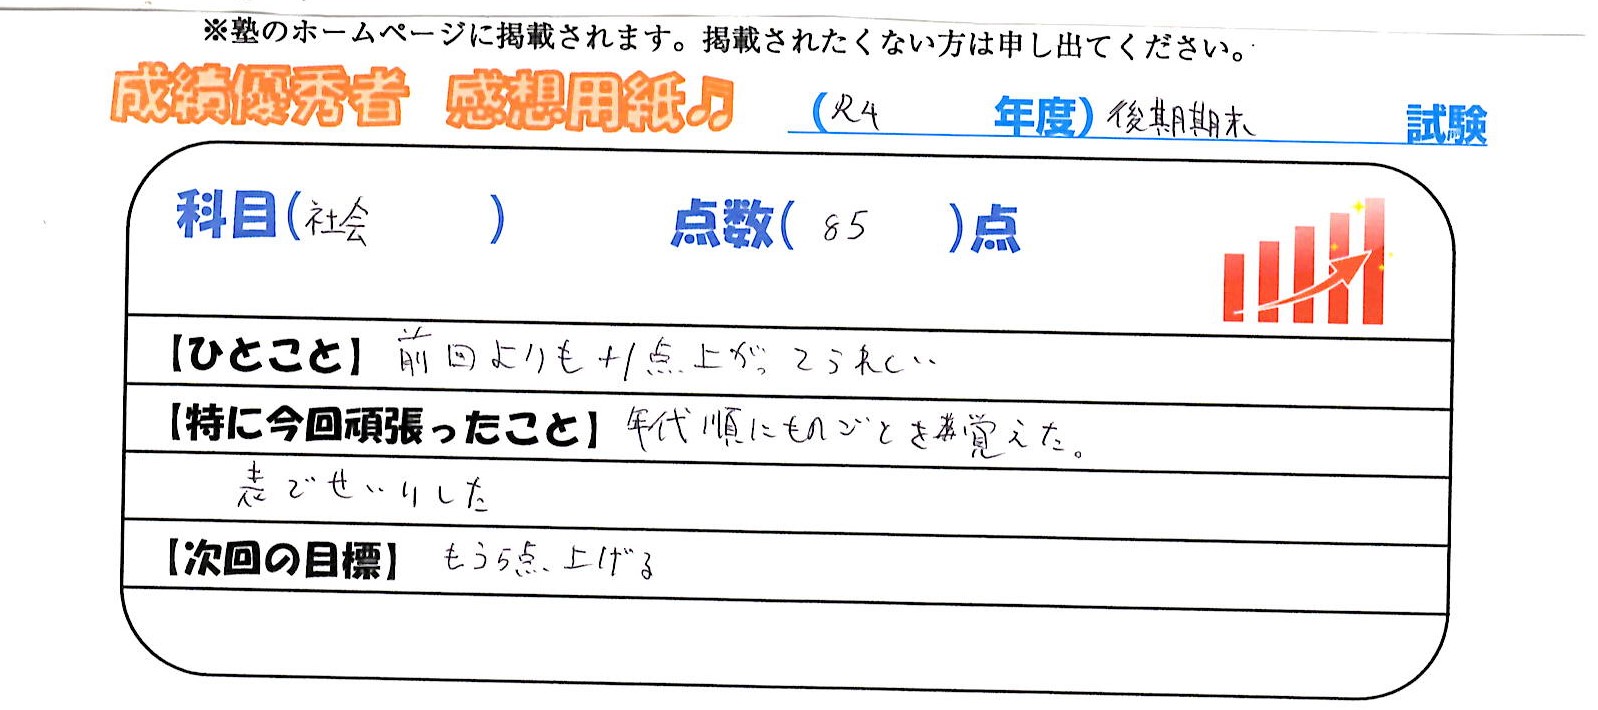 ※塾のホームページに掲載されます。掲載されたくない方は申し出てください。
成績優秀者 感想用紙♫ (R4 年度) 後期期末 試験
科目(社会 ) 点数( 85 )点
【ひとこと】 前回よりも+1点上がってうれしい
【特に今回頑張ったこと】年代順にものごとを覚えた。
表でせいりした
【次回の目標】 もう5点上げる